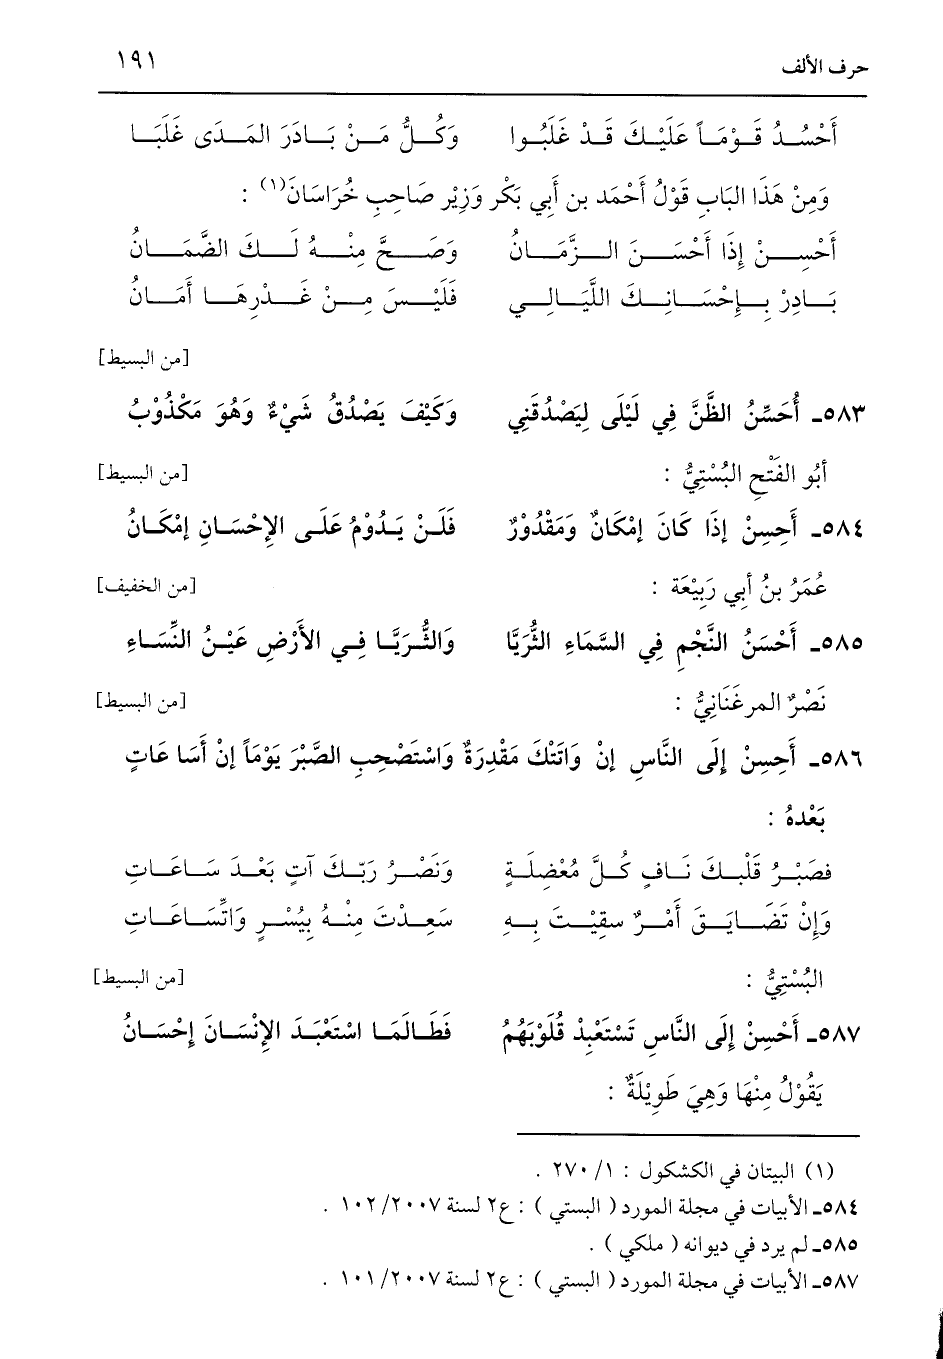 حرف الألف ١٩١
أَحْسُدُ قَوْمَاً عَلَيْكَ قَدْ غَلَبُوا وَكُلُّ مَنْ بَادَرَ المَدَى غَلَبَا
وَمِنْ هَذَا البَابِ قَوْلُ أَحْمَد بن أَبي بَكْر وَزِيْر صَاحِبِ خُرَاسَانَ(١) :
أَحْسِنْ إِذَا أَحْسَنَ الزَّمَانُ وَصَحَّ مِنْهُ لَكَ الضَّمَانُ
بَادِرْ بِإِحْسَانِكَ اللَّيَالِي فَلَيْسَ مِنْ غَدْرِهَا أَمَانُ
[من البسيط]
٥٨٣ـ أُحَسِّنُ الظَّنَّ فِي لَيْلَى لِيَصْدُقَنِي وَكَيْفَ يَصْدُقُ شَيْءٌ وَهُوَ مَكْذُوْبُ
أبُو الفَتْحِ البُسْتِيُّ : [من البسيط]
٥٨٤ـ أَحِسِنْ إِذَا كَانَ إِمْكَانٌ وَمَقْدُوْرٌ فَلَنْ يَدُوْمُ عَلَى الإِحْسَانِ إِمْكَانُ
عُمَرُ بنُ أَبي رَبِيْعَة : [من الخفيف]
٥٨٥ـ أَحْسَنُ النَّجْمِ فِي السَّمَاءِ الثُّرَيَّا وَالثُّرَيَّا فِي الأَرْضِ عَيْنُ النِّسَاءِ
نَصْرٌ المرغَنَانِيُّ : [من البسيط]
٥٨٦ـ أَحِسِنْ إِلَى النَّاسِ إِنْ وَاتَتْكَ مَقْدِرَةٌ وَاسْتَصْحِبِ الصَّبْرَ يَوْمَاً إِنْ أَسَا عَاتٍ
بَعْدهُ :
فصَبْرُ قَلْبِكَ نَافٍ كُلَّ مُعْضِلَةٍ وَنَصْرُ رَبِّكَ آتٍ بَعْدَ سَاعَاتِ
وَإِنْ تَضَايَقَ أَمْرٌ سقِيْتَ بِهِ سَعِدْتَ مِنْهُ بِيُسْرٍ وَاتِّسَاعَاتِ
البُسْتِيُّ : [من البسيط]
٥٨٧ـ أَحْسِنْ إِلَى النَّاسِ تَسْتَعْبِدْ قُلُوْبَهُمُ فَطَالَمَا اسْتَعْبَدَ الإِنْسَانَ إِحْسَانُ
يَقُوْلُ مِنْهَا وَهِيَ طَوِيْلَةٌ :
(١) البيتان في الكشكول : ١/ ٢٧٠ .
٥٨٤ـ الأبيات في مجلة المورد ( البستي ) : ع٢ لسنة ٢٠٠٧/ ١٠٢ .
٥٨٥ـ لم يرد في ديوانه ( ملكي ) .
٥٨٧ـ الأبيات في مجلة المورد ( البستي ) : ع٢ لسنة ٢٠٠٧/ ١٠١ .